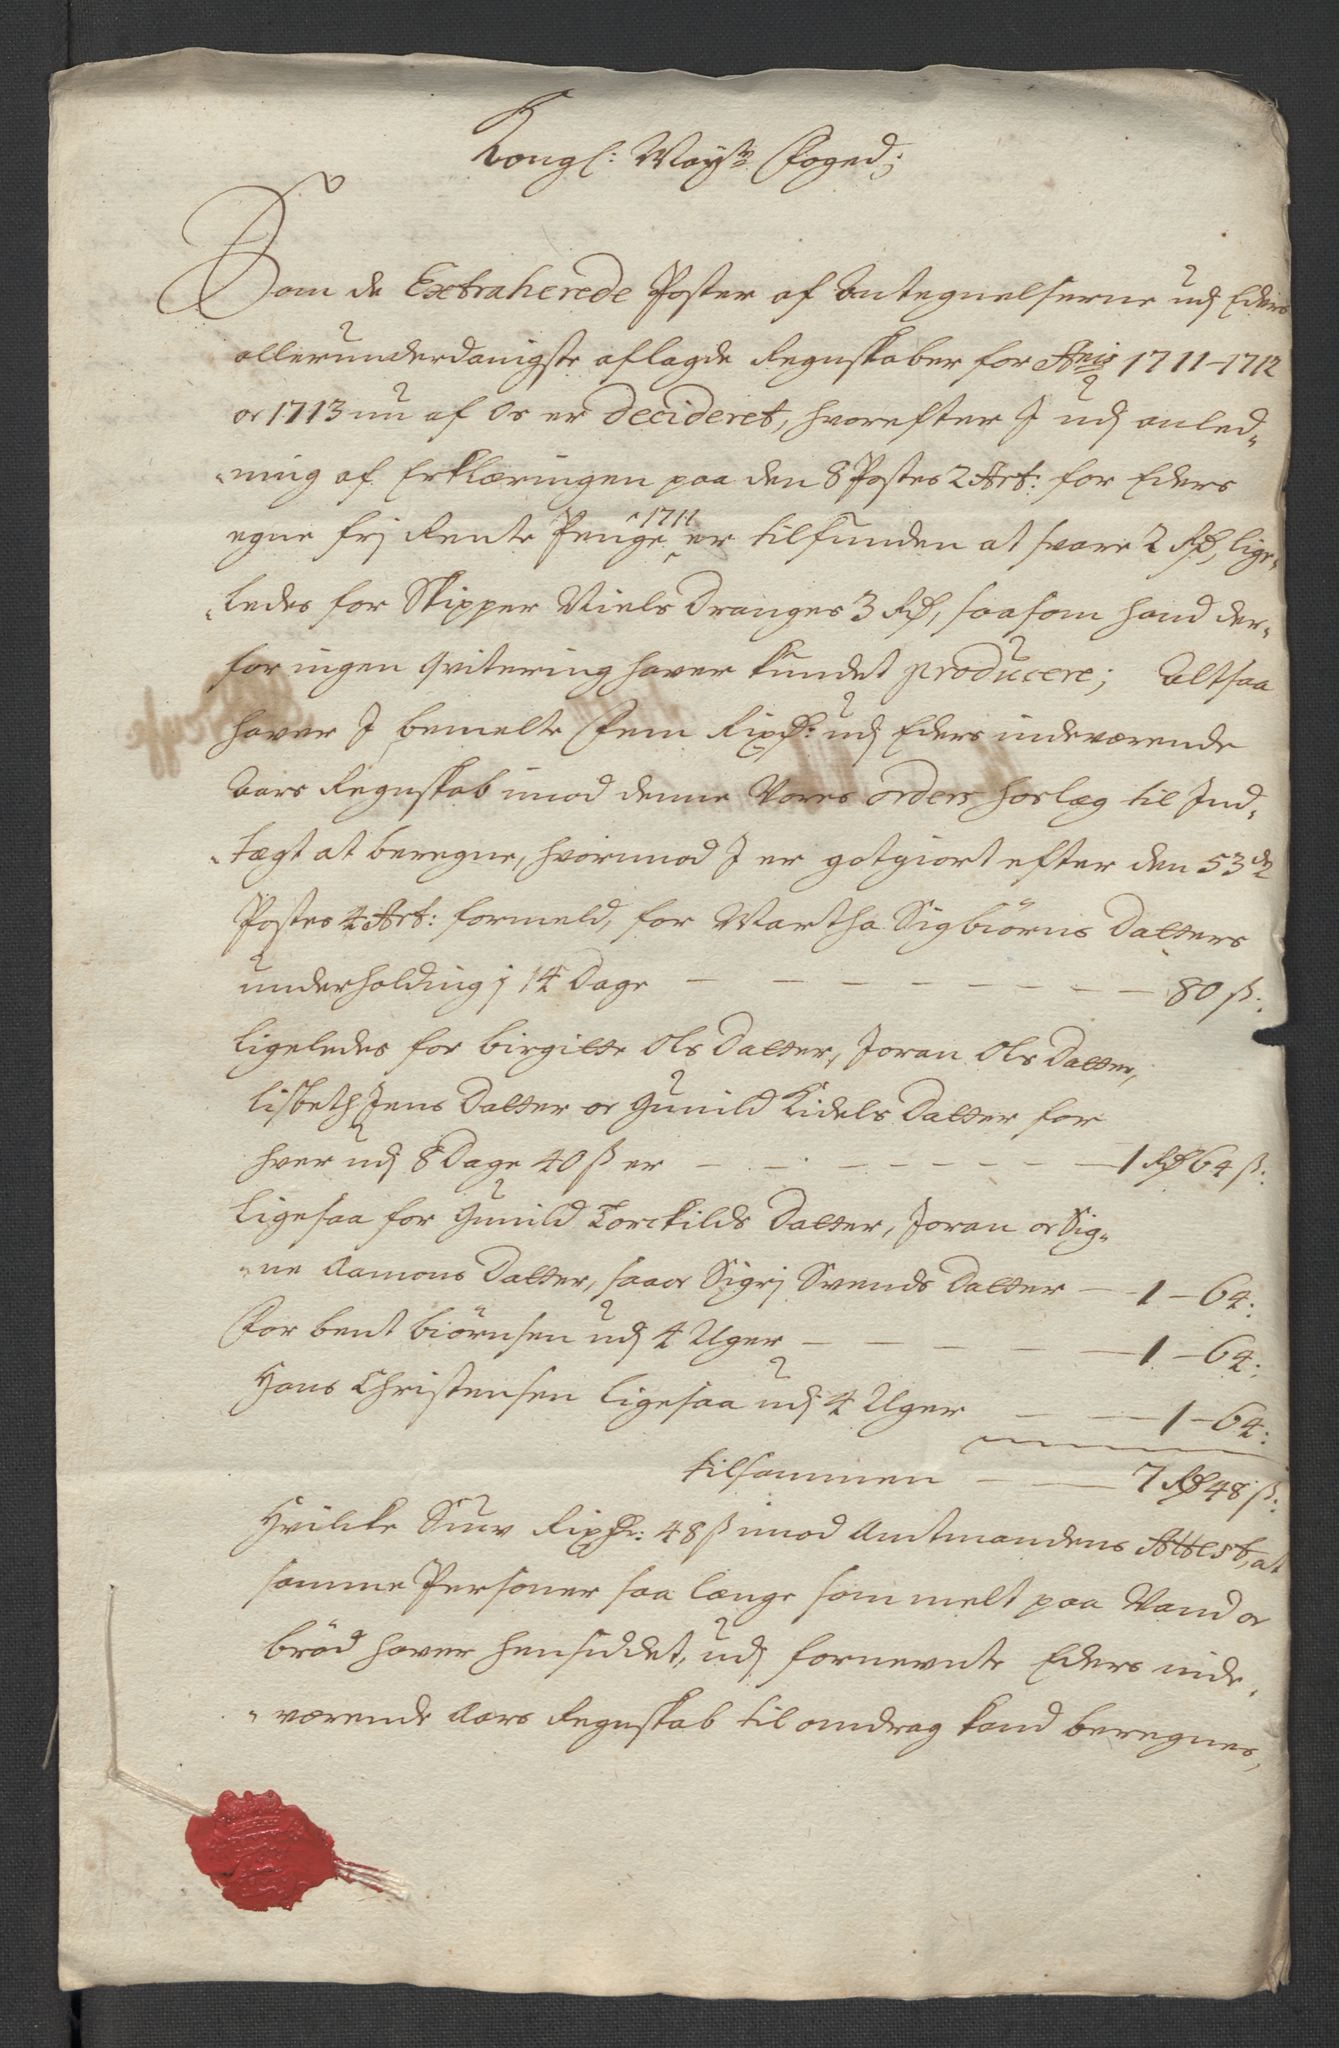 Kongl: Mayts Foged;
Som de Extraherede Poster af Antegnelserne udj Eders
allerunderdanigste aflagde Regnskaber for Anis 1711-1712
og 1713 nu af Os er Decideret, hvorefter I udj anled¬
¬ning af Erklæringen paa den 8 Postes 2 Art: for Eders
egne frj Rente Penge 1711 er tilfunden at svare 2 Rd, lige¬
¬ledes for Skipper Niels Dranges 3 Rd, saasom hand der¬
for ingen Qvitering haver kundet producere; Altsaa
haver I bemelte Fem Rixdr: udj Eders indeværende
Aars Regnskab imod denne Vores orders horlæg til Ind¬
¬tægt at beregne, hvorimod I er gotgiort efter den 53de
Postes 4 Art: formeld, for Martha Sigbiørns Datters
underholding j 14 Dage — — — — — — — 80 ß:
Ligeledes for Birgitte Ols Datter, Joran Ols Datter,
Lisbeth Jens Datter og Gunild Kidels Datter for
hver udj 8 Dage 40 ß er — — — — — — — 1 Rd 64 ß:
Ligesaa for Gunild Torckilds Datter, Joran og Sig¬
¬ne Aamons Datter, saa og Sigrj Svends Datter — 1 – 64:
For bent biørnsen udj 4 Uger — — — — — 1 – 64:
Hans Christensen ligesaa udj 4 Uger — — 1 – 64:
tilsammen — — 7 Rd 48 ß:
Hvilcke Siuv Rixdr: 48 ß imod Amtmandens Attest, at
samme Personer saa længe som melt paa Vand og
brød haver hensiddet, udj fornevnte Eders inde¬
¬værende Aars Regnskab til omdrag kand beregnes,